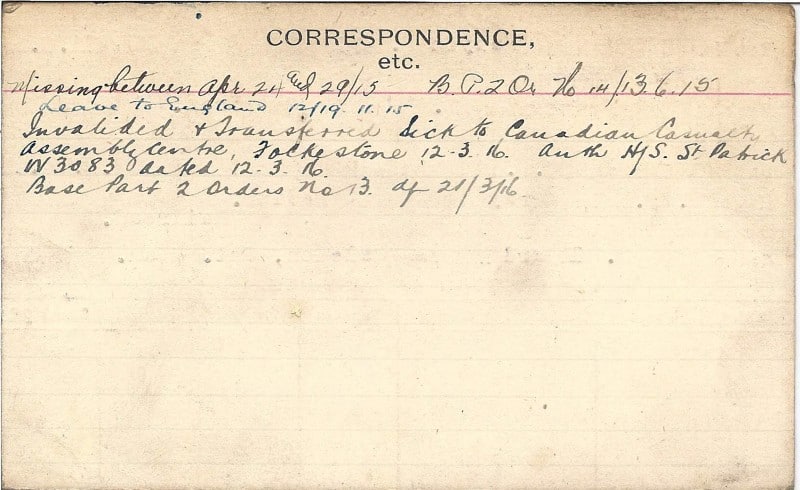 CORRESPONDENCE,
etc.
Missing between Apr 24 and 29/15 B. P. 2 Or No 14/13.6.15
Leave to England 12/19.11.15
Invalided & Transferred Sick to Canadian Casualty
Assembly Centre, Folkestone 12-3.16. Auth H/S. St Patrick
W 3083 dated 12-3.16.
Base Part 2 Orders No 13. of 21/3/16